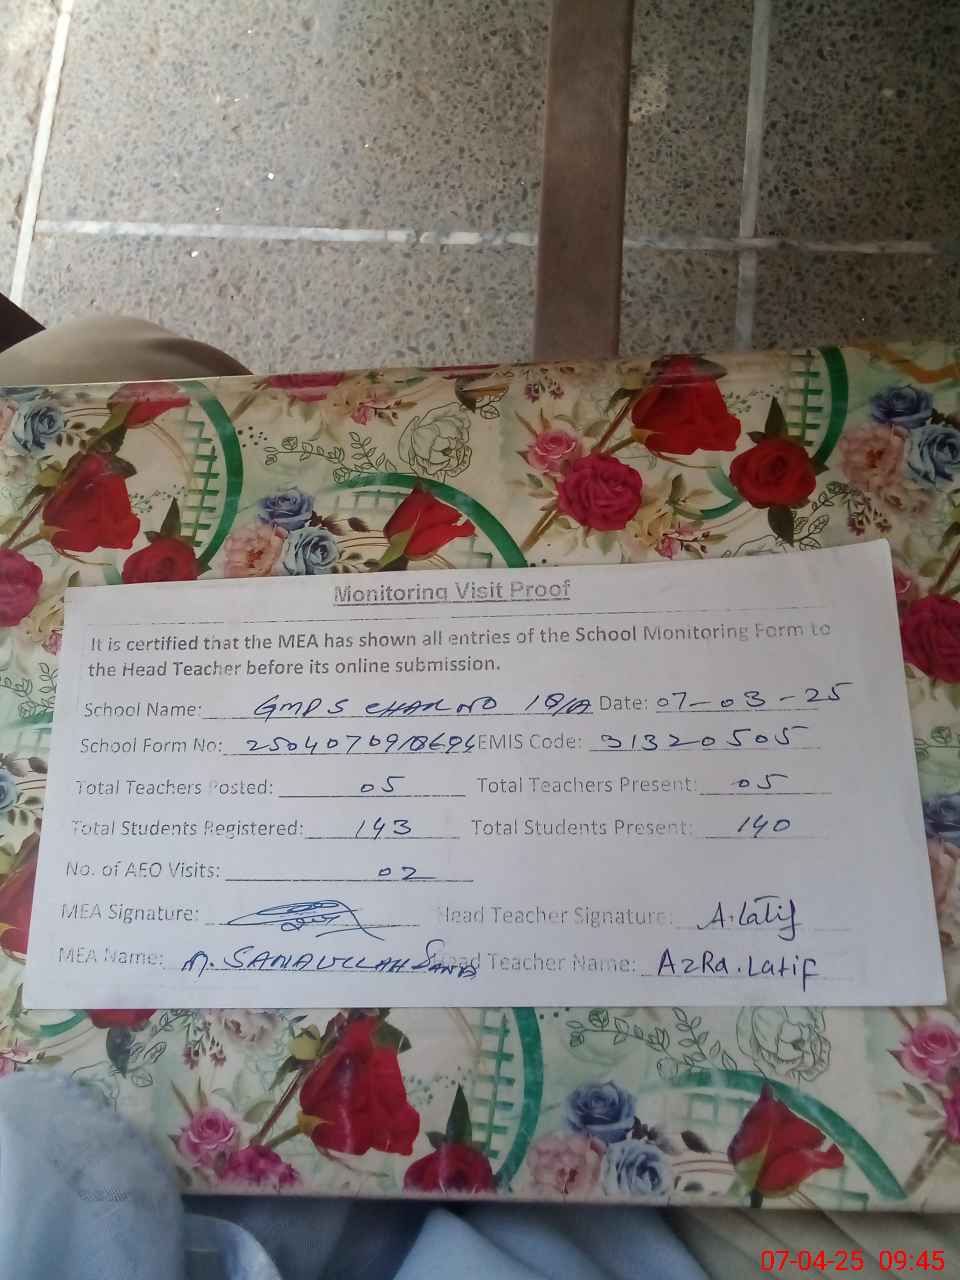 Monitoring Visit Proof
It is certified that the MEA has shown all entries of the School Monitoring Form to
the Head Teacher before its online submission.
School Name: GMPS CHAK NO 18/A Date: 07-03-25
School Form No: EMIS Code: 31320505
Total Teachers Posted: 05 Total Teachers Present: 05
Total Students Registered: 143 Total Students Present: 140
No. of AEO Visits: 02
MEA Signature: Head Teacher Signature: A.Latif
MEA Name: M. SANAULLAH SANA Head Teacher Name: AzRa.Latif
07-04-25 09:45